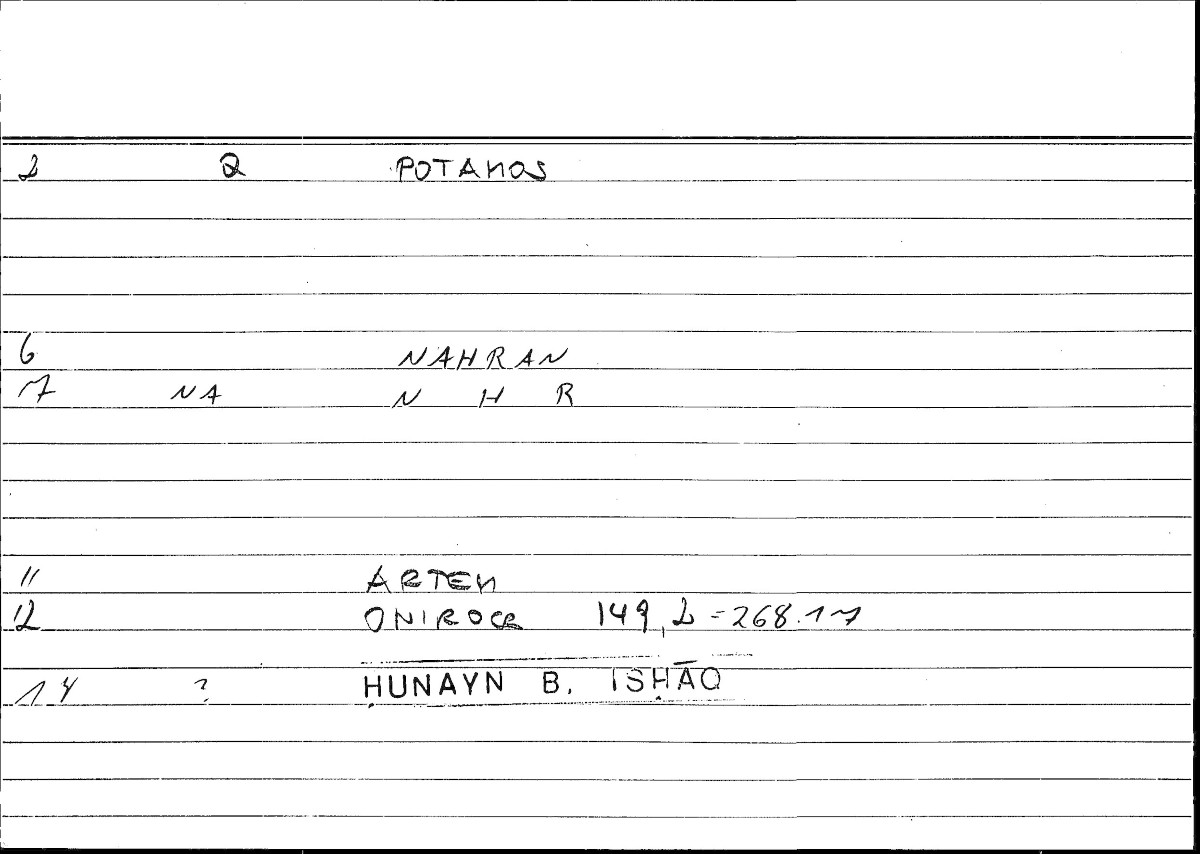 2 Q POTAMOS
6 NAHRAN
7 NA N H R
11 ARTEM
12 ONIROCR 149,2 = 268.17
14 ? ḤUNAYN B. ISḤĀQ